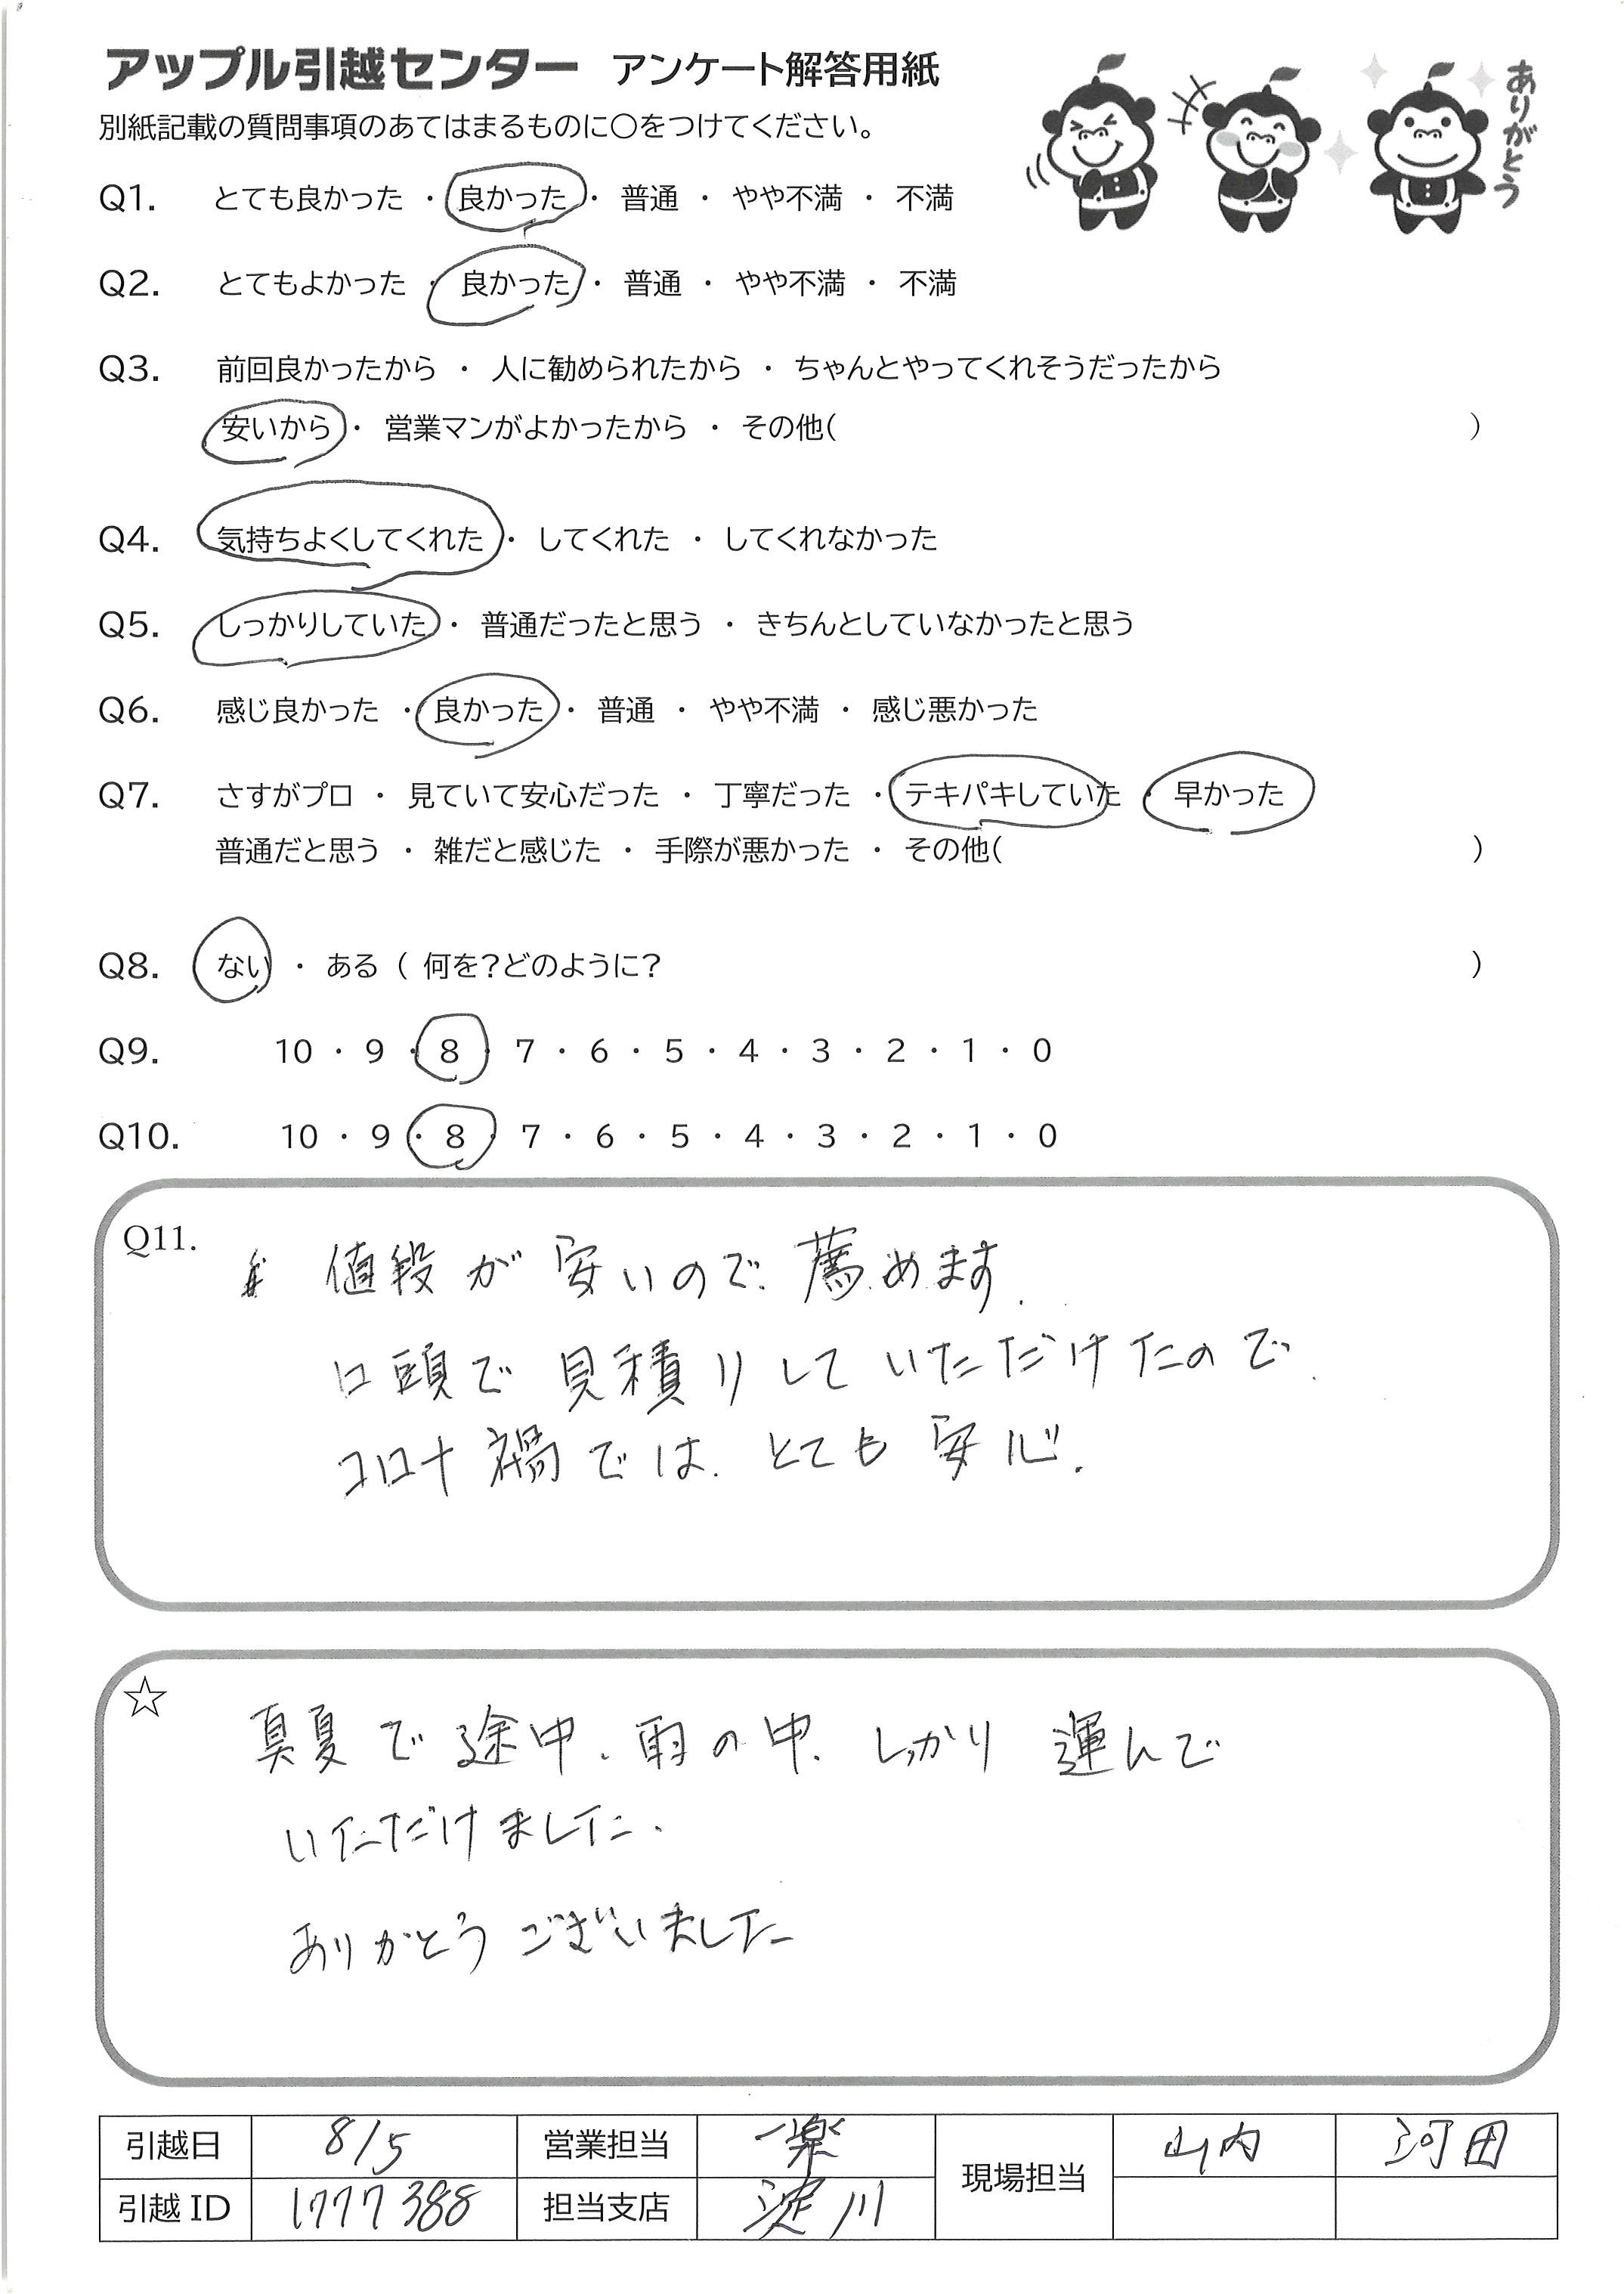 アップル引越センター アンケート解答用紙
ありがとう
別紙記載の質問事項のあてはまるものに○をつけてください。
Q1. とても良かった ・ 良かった ・ 普通 ・ やや不満 ・ 不満
Q2. とてもよかった ・ 良かった ・ 普通 ・ やや不満 ・ 不満
Q3. 前回良かったから ・ 人に勧められたから ・ ちゃんとやってくれそうだったから
安いから ・ 営業マンがよかったから ・ その他( )
Q4. 気持ちよくしてくれた ・ してくれた ・ してくれなかった
Q5. しっかりしていた ・ 普通だったと思う ・ きちんとしていなかったと思う
Q6. 感じ良かった ・ 良かった ・ 普通 ・ やや不満 ・ 感じ悪かった
Q7. さすがプロ ・ 見ていて安心だった ・ 丁寧だった ・ テキパキしていた ・ 早かった
普通だと思う ・ 雑だと感じた ・ 手際が悪かった ・ その他( )
Q8. ない ・ ある ( 何を?どのように? )
Q9. 10 ・ 9 ・ 8 ・ 7 ・ 6 ・ 5 ・ 4 ・ 3 ・ 2 ・ 1 ・ 0
Q10. 10 ・ 9 ・ 8 ・ 7 ・ 6 ・ 5 ・ 4 ・ 3 ・ 2 ・ 1 ・ 0
Q11. 値段が安いので、薦めます。
口頭で見積りしていただけたので、
コロナ禍では、とても安心。
☆ 真夏で途中、雨の中、しっかり運んで
いただけました。
ありがとうございました
引越日 8/5 営業担当 一楽 現場担当 山内 河田
引越ID 1777388 担当支店 淀川